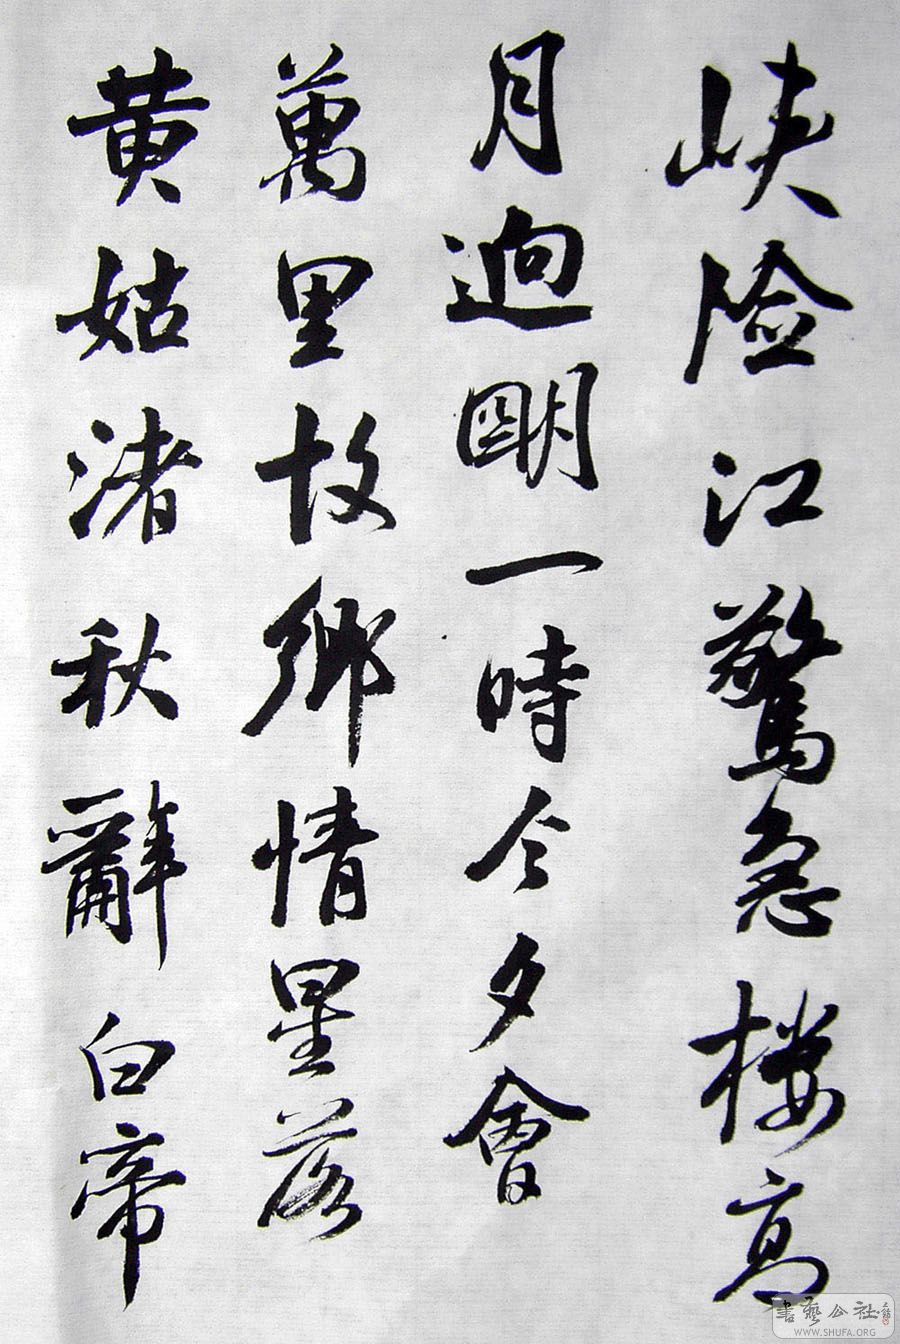 峡险江驚急楼高
月迥明一時今夕會
萬里故鄉情星落
黄姑渚秋辭白帝
書藝公社
WWW.SHUFA.ORG